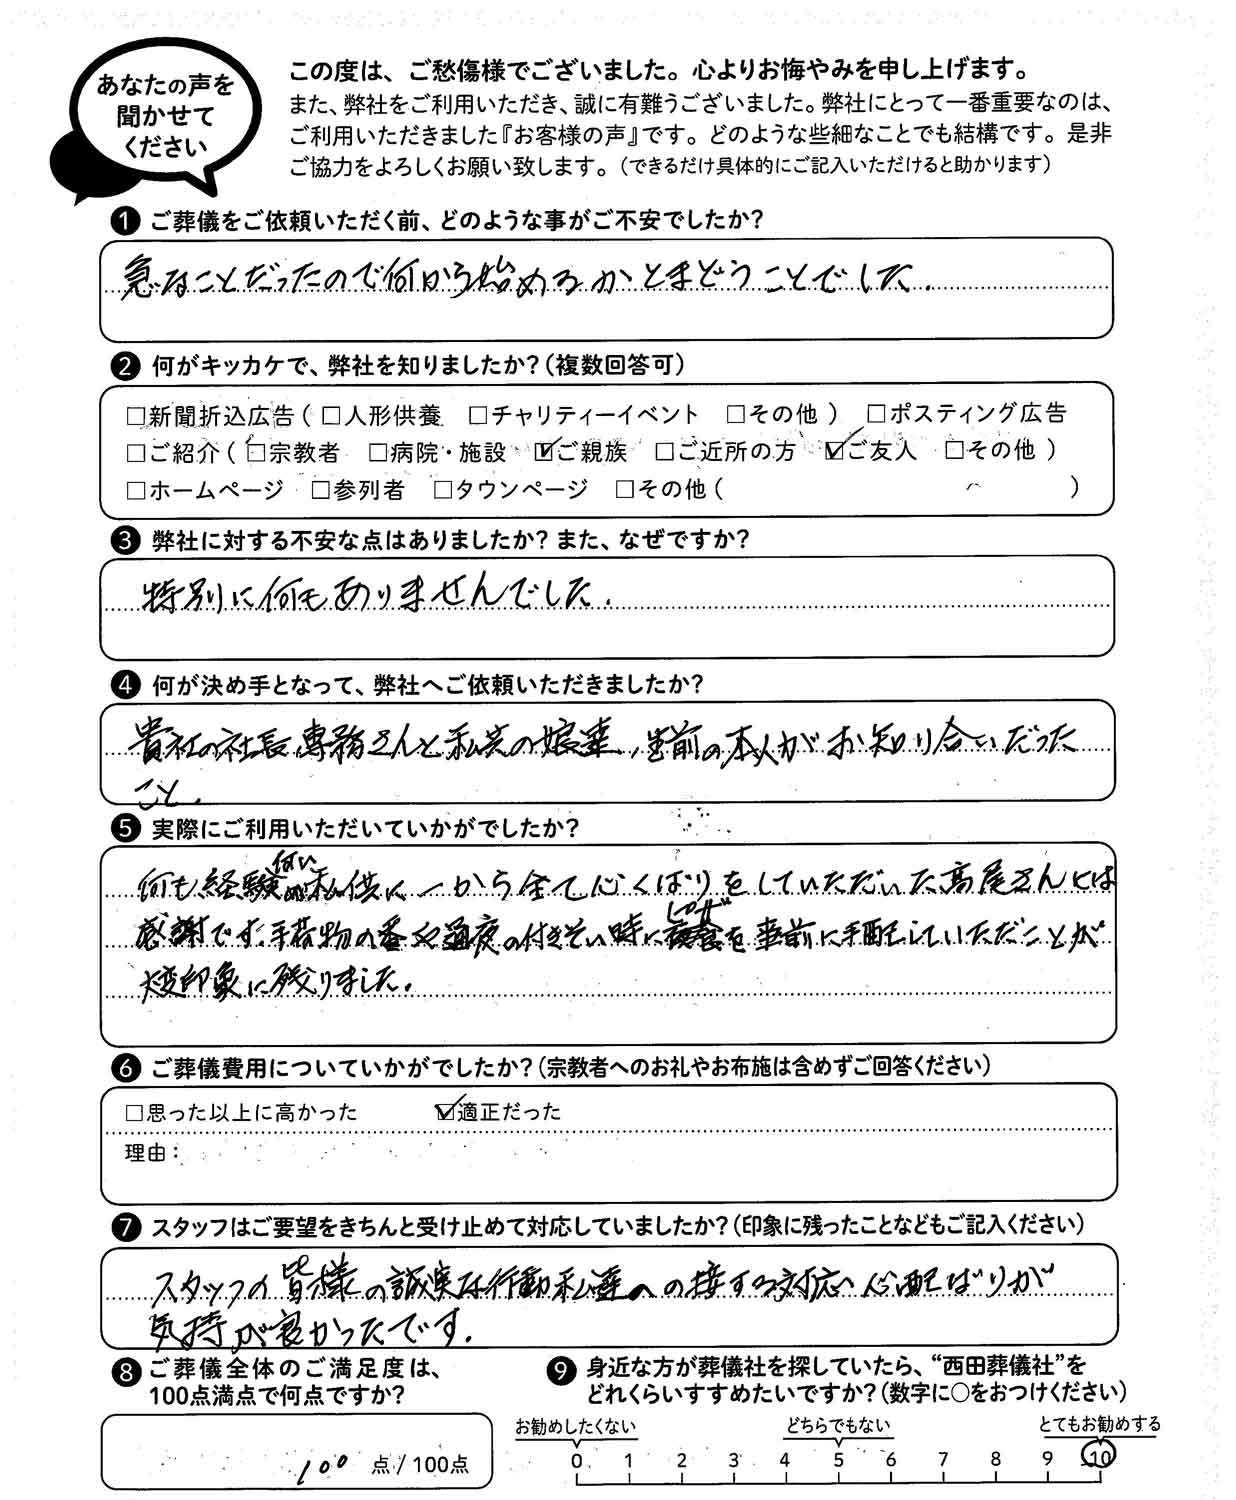 あなたの声を
聞かせて
ください
この度は、ご愁傷様でございました。心よりお悔やみを申し上げます。
また、弊社をご利用いただき、誠に有難うございました。弊社にとって一番重要なのは、
ご利用いただきました『お客様の声』です。どのような些細なことでも結構です。是非
ご協力をよろしくお願い致します。（できるだけ具体的にご記入いただけると助かります）
❶ ご葬儀をご依頼いただく前、どのような事がご不安でしたか?
急なことだったので何から始めるかとまどうことでした.
❷ 何がキッカケで、弊社を知りましたか?（複数回答可）
□新聞折込広告（ □人形供養 □チャリティーイベント □その他 ） □ポスティング広告
□ご紹介（ □宗教者 □病院・施設 ☑ご親族 □ご近所の方 ☑ご友人 □その他 ）
□ホームページ □参列者 □タウンページ □その他（ ）
❸ 弊社に対する不安な点はありましたか? また、なぜですか?
特別に何もありませんでした.
❹ 何が決め手となって、弊社へご依頼いただきましたか?
貴社の社長、専務さんと私共の娘達、生前の本人がお知り合いだった
こと.
❺ 実際にご利用いただいていかがでしたか?
何い
何も経験の私供に一から全て心くばりをしていただいた高尾さんには
ピザ
感謝です.手荷物の番や通夜の付きそい時に夜食を事前に手配していただことが
大変印象に残りました.
❻ ご葬儀費用についていかがでしたか?（宗教者へのお礼やお布施は含めずご回答ください）
□思った以上に高かった ☑適正だった
理由：
❼ スタッフはご要望をきちんと受け止めて対応していましたか?（印象に残ったことなどもご記入ください）
スタッフの皆様の誠実な行動私達への接する対応、心配ばりが
気持が良かったです.
❽ ご葬儀全体のご満足度は、
100点満点で何点ですか?
100 点 / 100点
❾ 身近な方が葬儀社を探していたら、“西田葬儀社”を
どれくらいすすめたいですか?（数字に○をおつけください）
お勧めしたくない どちらでもない とてもお勧めする
0 1 2 3 4 5 6 7 8 9 10